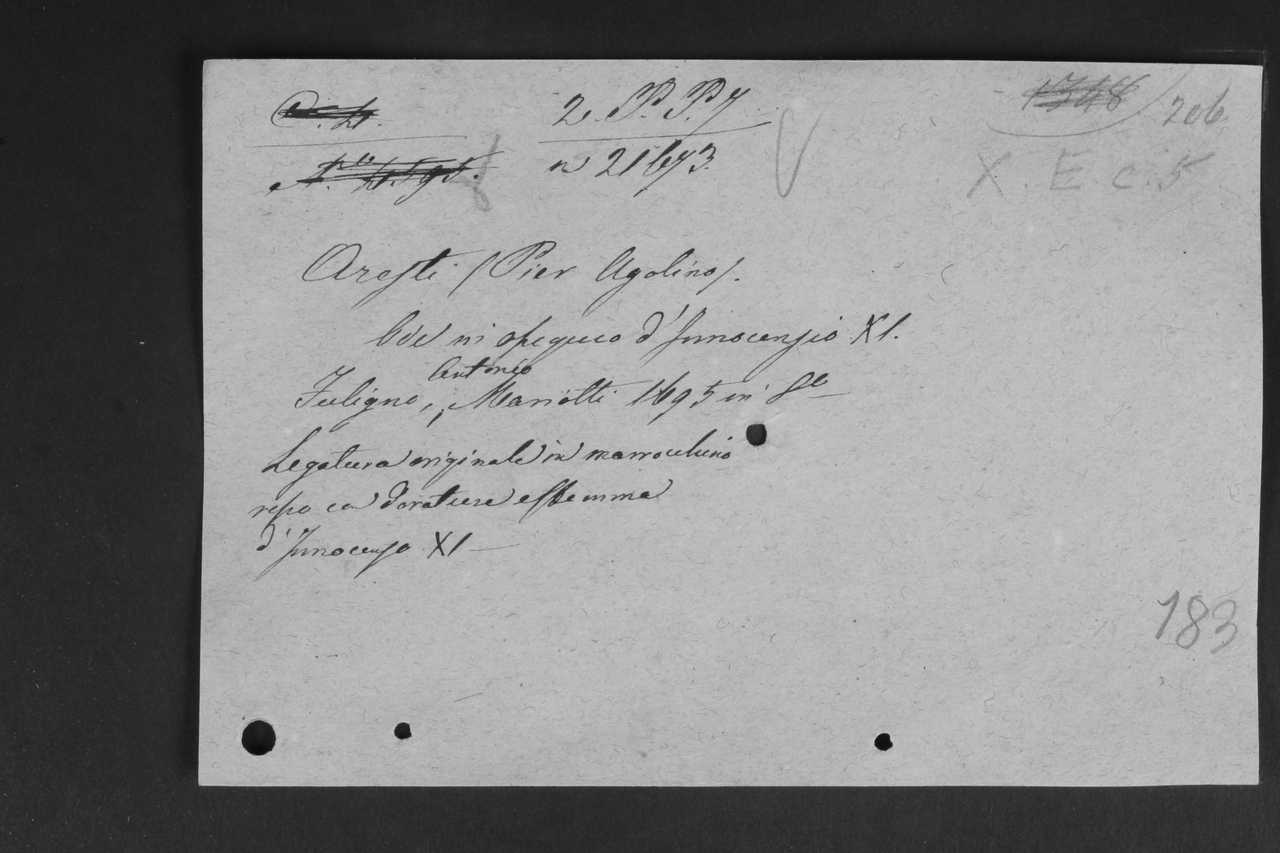 C. 4. 2. P. P. 7 1748 206
N.ro 4595. n 21673. X. E c. 5
Aresti (Pier Ugolino).
Ode in ossequio d'Innocenzio XI.
Antonio
Fuligno, Mariotti 1695 in 8°
Legatura originale in marrocchino
rosso con dorature e stemma
d'Innocenzo XI
183